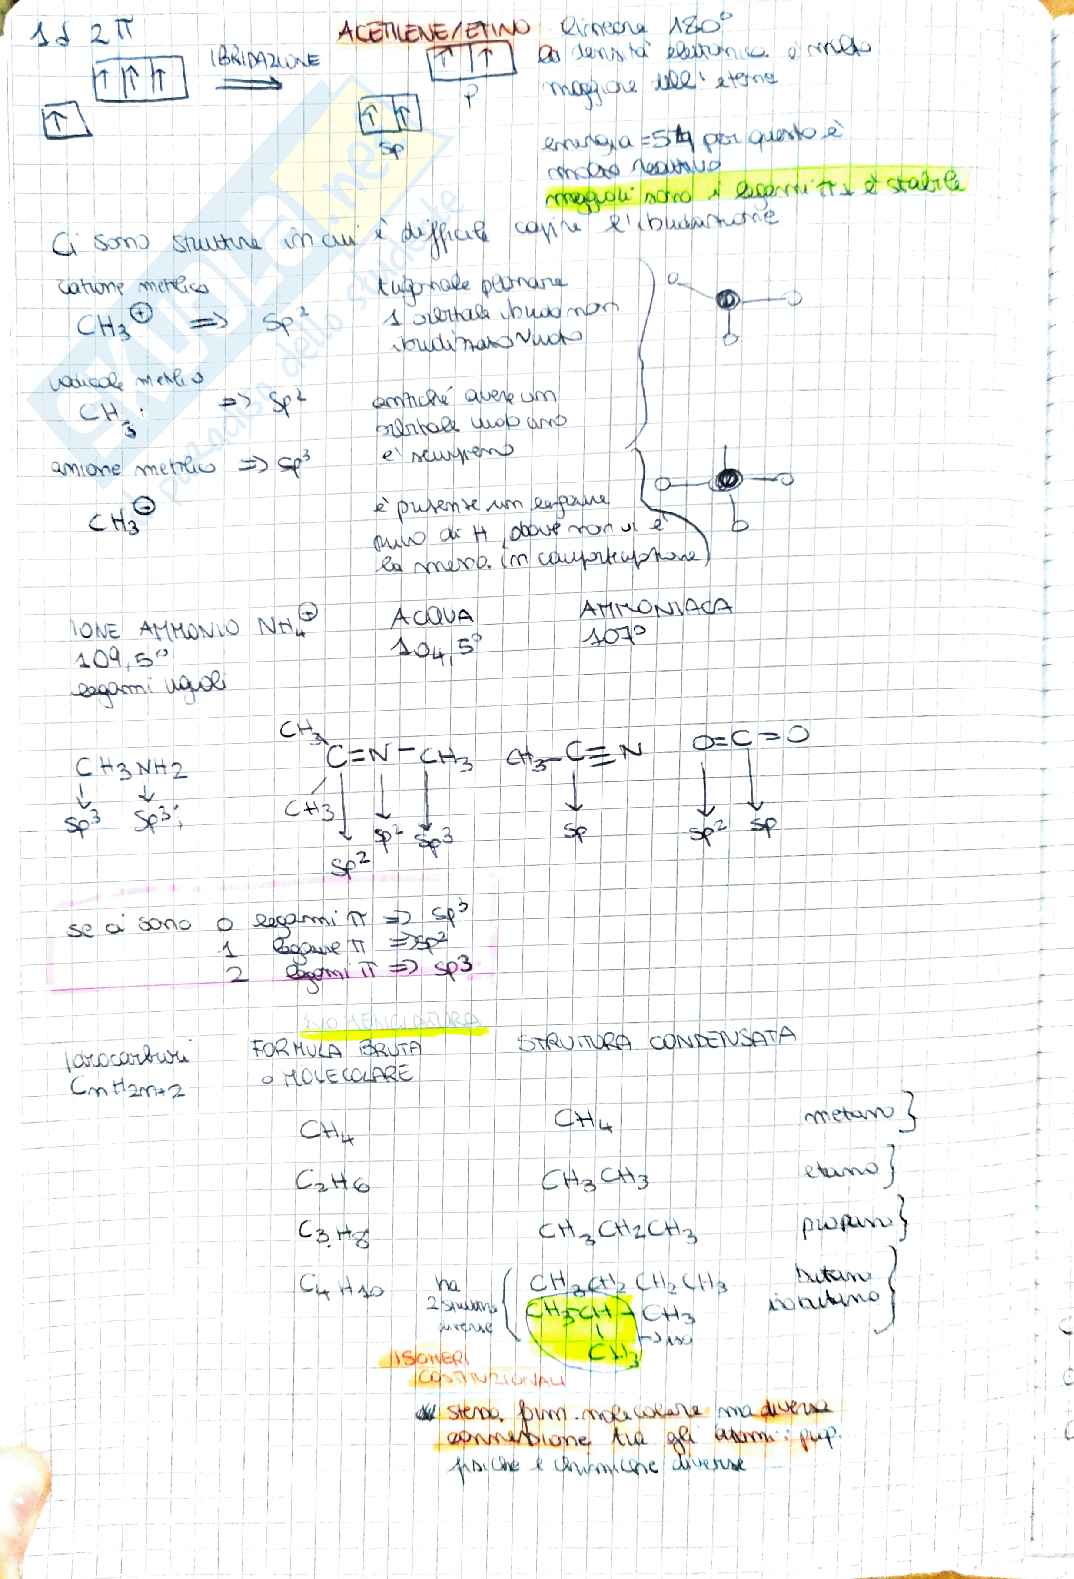 1σ 2π
ACETILENE/ETINO lineare 180°
IBRIDAZIONE
la densità elettronica è molto
maggiore dell'etene
p
sp
energia = 54 per questo è
molto reattivo
maggiori sono i legami π + è stabile
Ci sono strutture in cui è difficile capire l'ibridazione
catione metilico
CH3⊕ => sp2
trigonale planare
1 orbitale
vuoto
radicale metilico
CH3· => sp2
anziché avere un
orbitale
anione metilico => sp3
CH3⊖
è presente un legame
di H, dove non vi è
la in
IONE AMMONIO NH4⊕
109,5°
legami uguali
ACQUA
104,5°
AMMONIACA
107°
CH3NH2
sp3 sp3
CH3
C=N-CH3
CH3
sp2 sp2 sp3
CH3-C≡N
sp
O=C=O
sp2 sp
se ci sono 0 legami π => sp3
1 legame π => sp2
2 legami π => sp3
NOMENCLATURA
Idrocarburi
CnH2n+2
FORMULA BRUTA
o MOLECOLARE
STRUTTURA CONDENSATA
CH4 CH4 metano }
C2H6 CH3CH3 etano }
C3H8 CH3CH2CH3 propano }
C4H10 ha
2 strutture
diverse
CH3CH2CH2CH3 butano
CH3-CH-CH3 isobutano
CH3 → iso
ISOMERI
COSTITUZIONALI
stessa form. molecolare ma diversa
connessione tra gli atomi: prop.
fisiche e chimiche diverse
SKUOLA.net
il paradiso dello studente